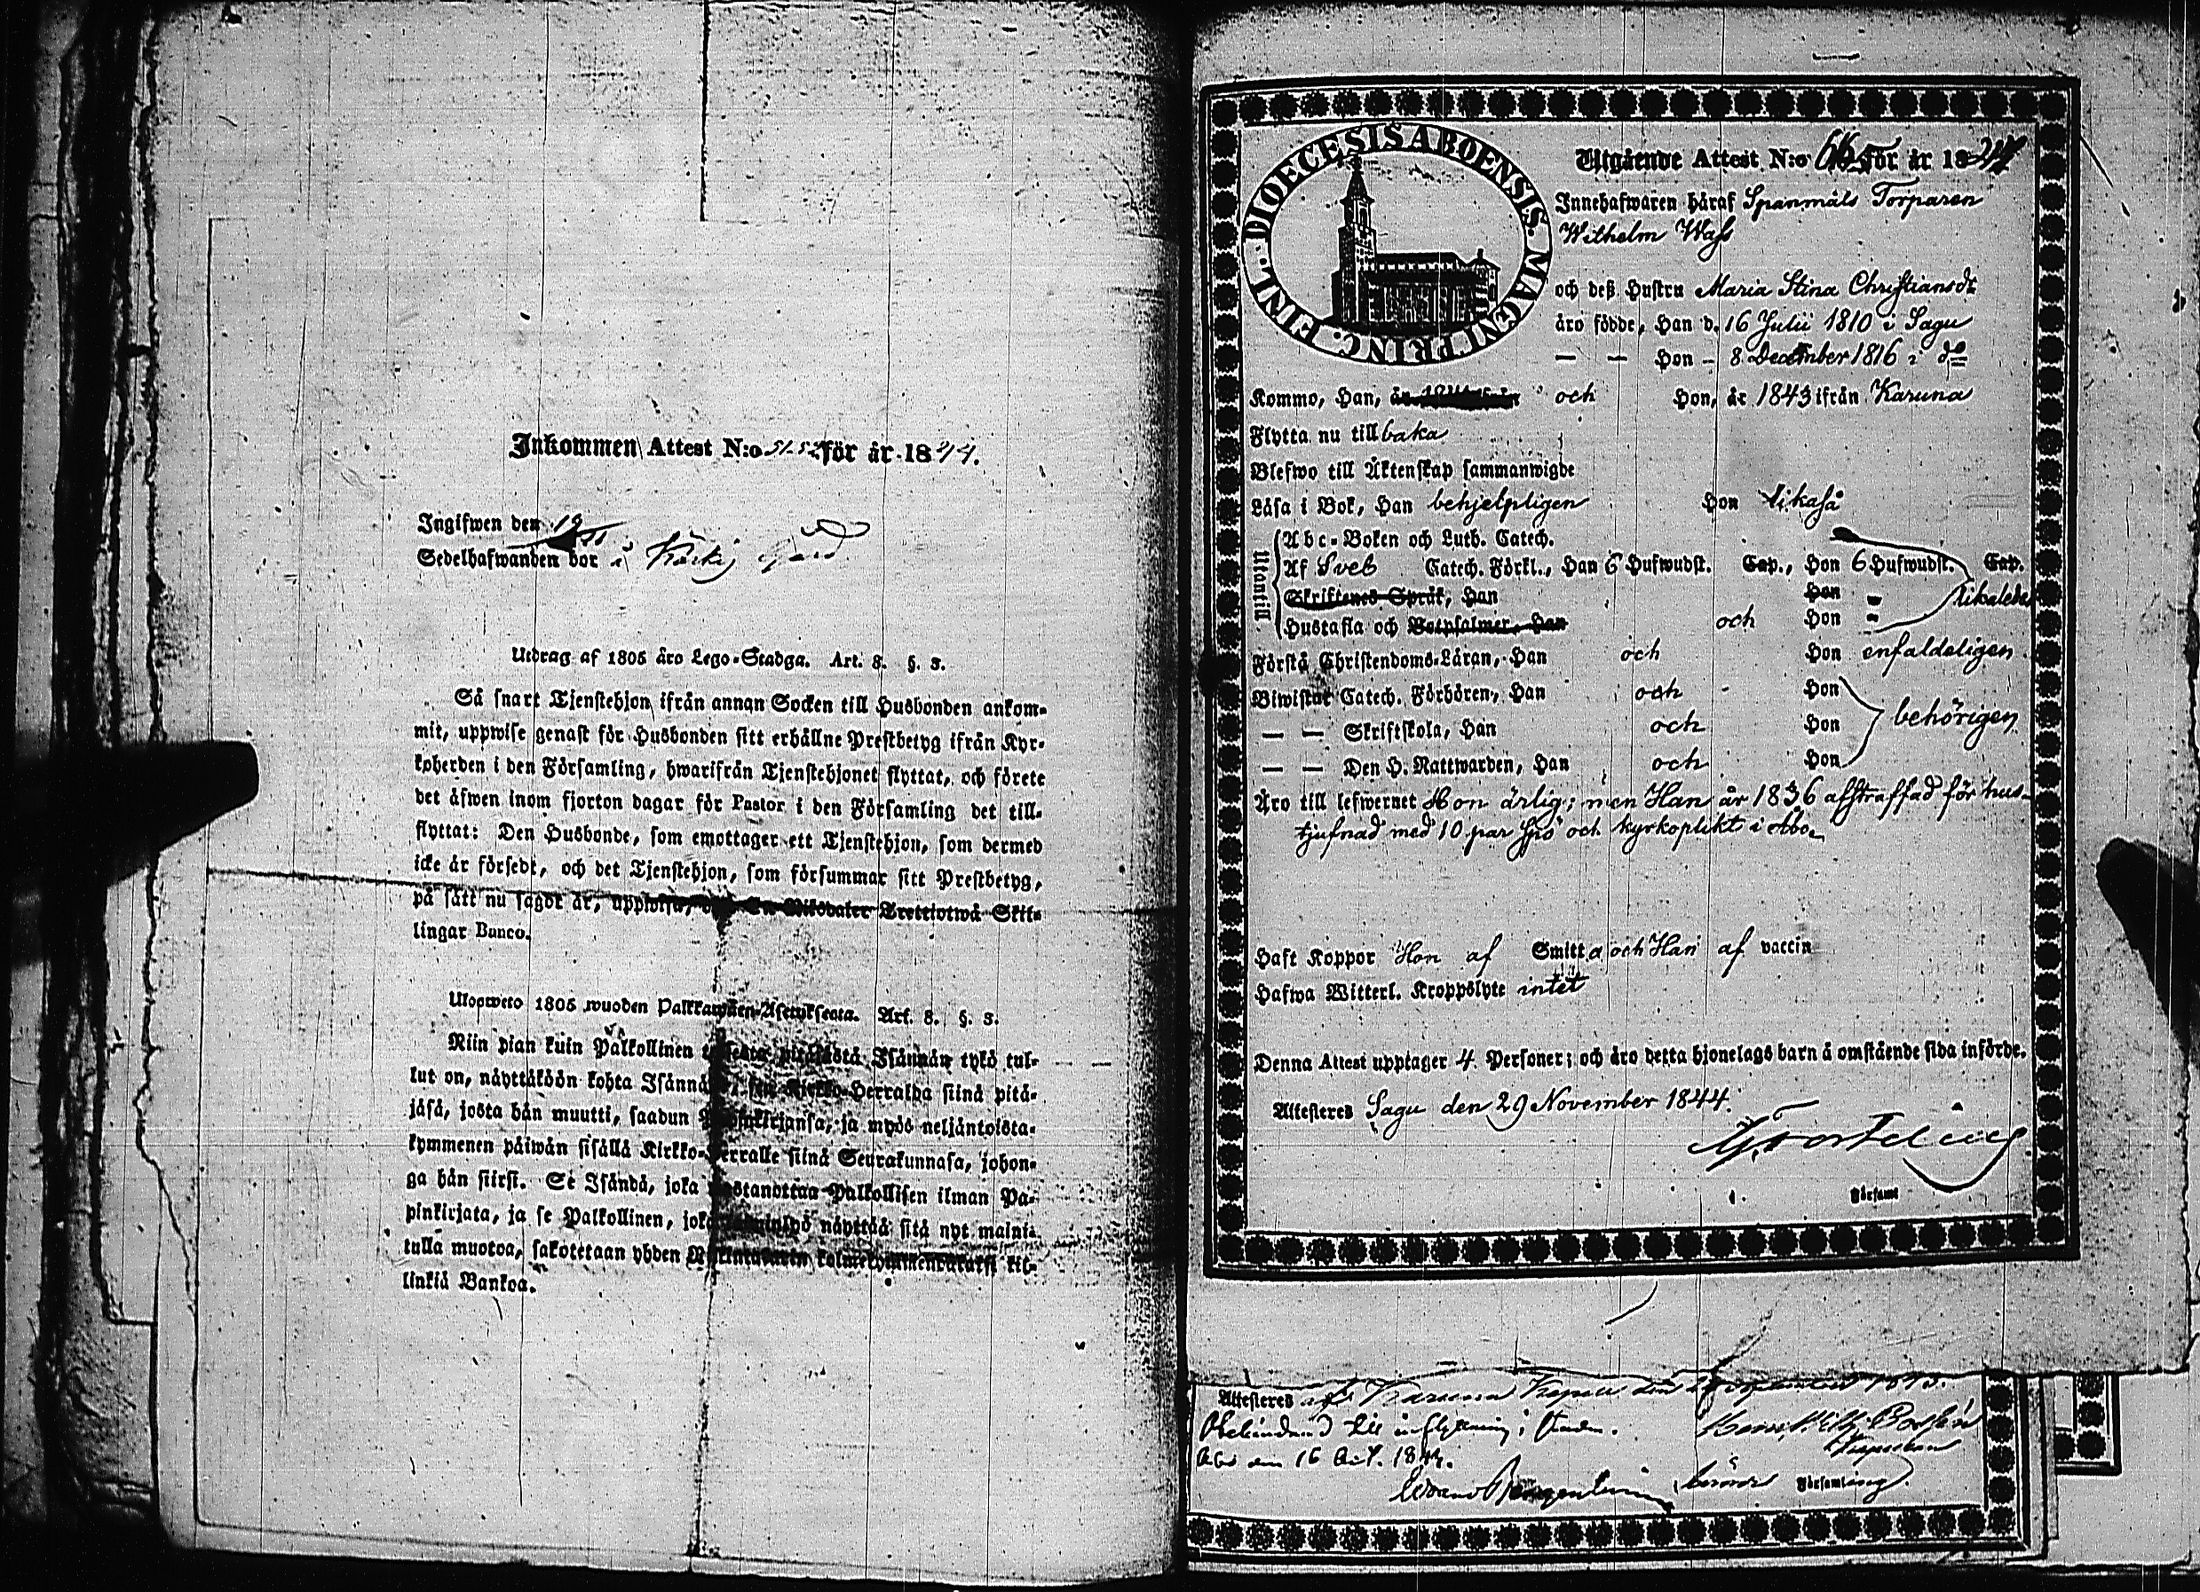 Inkommen Attest N:o 51-52 för år 1844.
Ingifwen den 19
Sedelhafwanden bor i Kärkis gård
Utdrag af 1805 års Lego-Stadga. Art. 8. §. 3.
Så snart Tjenstehjon ifrån annan Socken till Husbonden ankom-
mit, uppwise genast för Husbonden sitt erhållne Prestbetyg ifrån Kyr-
koherden i den Församling, hwarifrån Tjenstehjonet flyttat, och förete
det äfwen inom fjorton dagar för Pastor i den Församling det till-
flyttat: Den Husbonde, som emottager ett Tjenstehjon, som dermed
icke är försedt, och det Tjenstehjon, som försummar sitt Prestbetyg,
på sätt nu sagdt är, uppwisa, Riksdaler Trettiotwå Skil-
lingar Banco.
Ulosweto 1805 wuoden Palkkawäen-Asetuksesta. Art. 8. §. 3.
Niin pian kuin Palkollinen toisesta pitäjästä Isännän tykö tul-
lut on, näyttäköön kohta Isännälle, sen Kirkko-Herralda siinä pitä-
jäsä, josta hän muutti, saadun Papinkirjansa, ja myös neljäntoista-
kymmenen päiwän sisällä Kirkko-Herralle siinä Seurakunnasa, johon-
ga hän siirsi. Se Isändä, joka wastanottaa Palkollisen ilman Pa-
pinkirjata, ja se Palkollinen, joka näyttää sitä nyt maini-
tulla muotoa, sakotetaan yhden Riksintalarin kolmekymmentäkaksi kil-
linkiä Bankoa.
FINL. DIOECESIS ABOENSIS. MAGNI PRINC.
Utgående Attest N:o 66 för år 1844
Innehafwaren häraf Spanmåls Torparen
Wilhelm Wass
och dess Hustru Maria Stina Christiansdr
äro födde, Han d. 16 Julii 1810 i Sagu
— — Hon - 8 December 1816 i do
Kommo, Han, och Hon, år 1843 ifrån Karuna
Flytta nu tillbaka
Blefwo till Äktenskap sammanwigde
Läsa i Bok, Han behjelpligen Hon likaså
Utantill
Abc-Boken och Luth. Catech.
Af Sveb Catech. Förkl., Han 6 Hufwudst. Cap., Hon 6 Hufwudst. Cap.
Skriftenes Språk, Han Hon " likaledes
Hustafla och Botpsalmer, Han och Hon "
Förstå Christendoms-Läran, Han och Hon enfaldeligen
Biwistat Catech. Förhören, Han och Hon
— — Skriftskola, Han och Hon behörigen
— — Den H. Nattwarden, Han och Hon
Äro till lefwernet Hon ärlig; men Han år 1836 afstraffad för hus-
tjufnad med 10 par Spö och kyrkoplikt i Åbo
Haft Koppor Hon af Smitta och Han af vaccin
Hafwa Witterl. Kroppslyte intet
Denna Attest upptager 4 Personer; och äro detta hjonelags barn å omstående sida införde.
Attesteres Sagu den 29 November 1844.
Församl
Attesteres af Karuna Kapell den September 1843.
Åbo den 16 Oct. 1843.
Församling